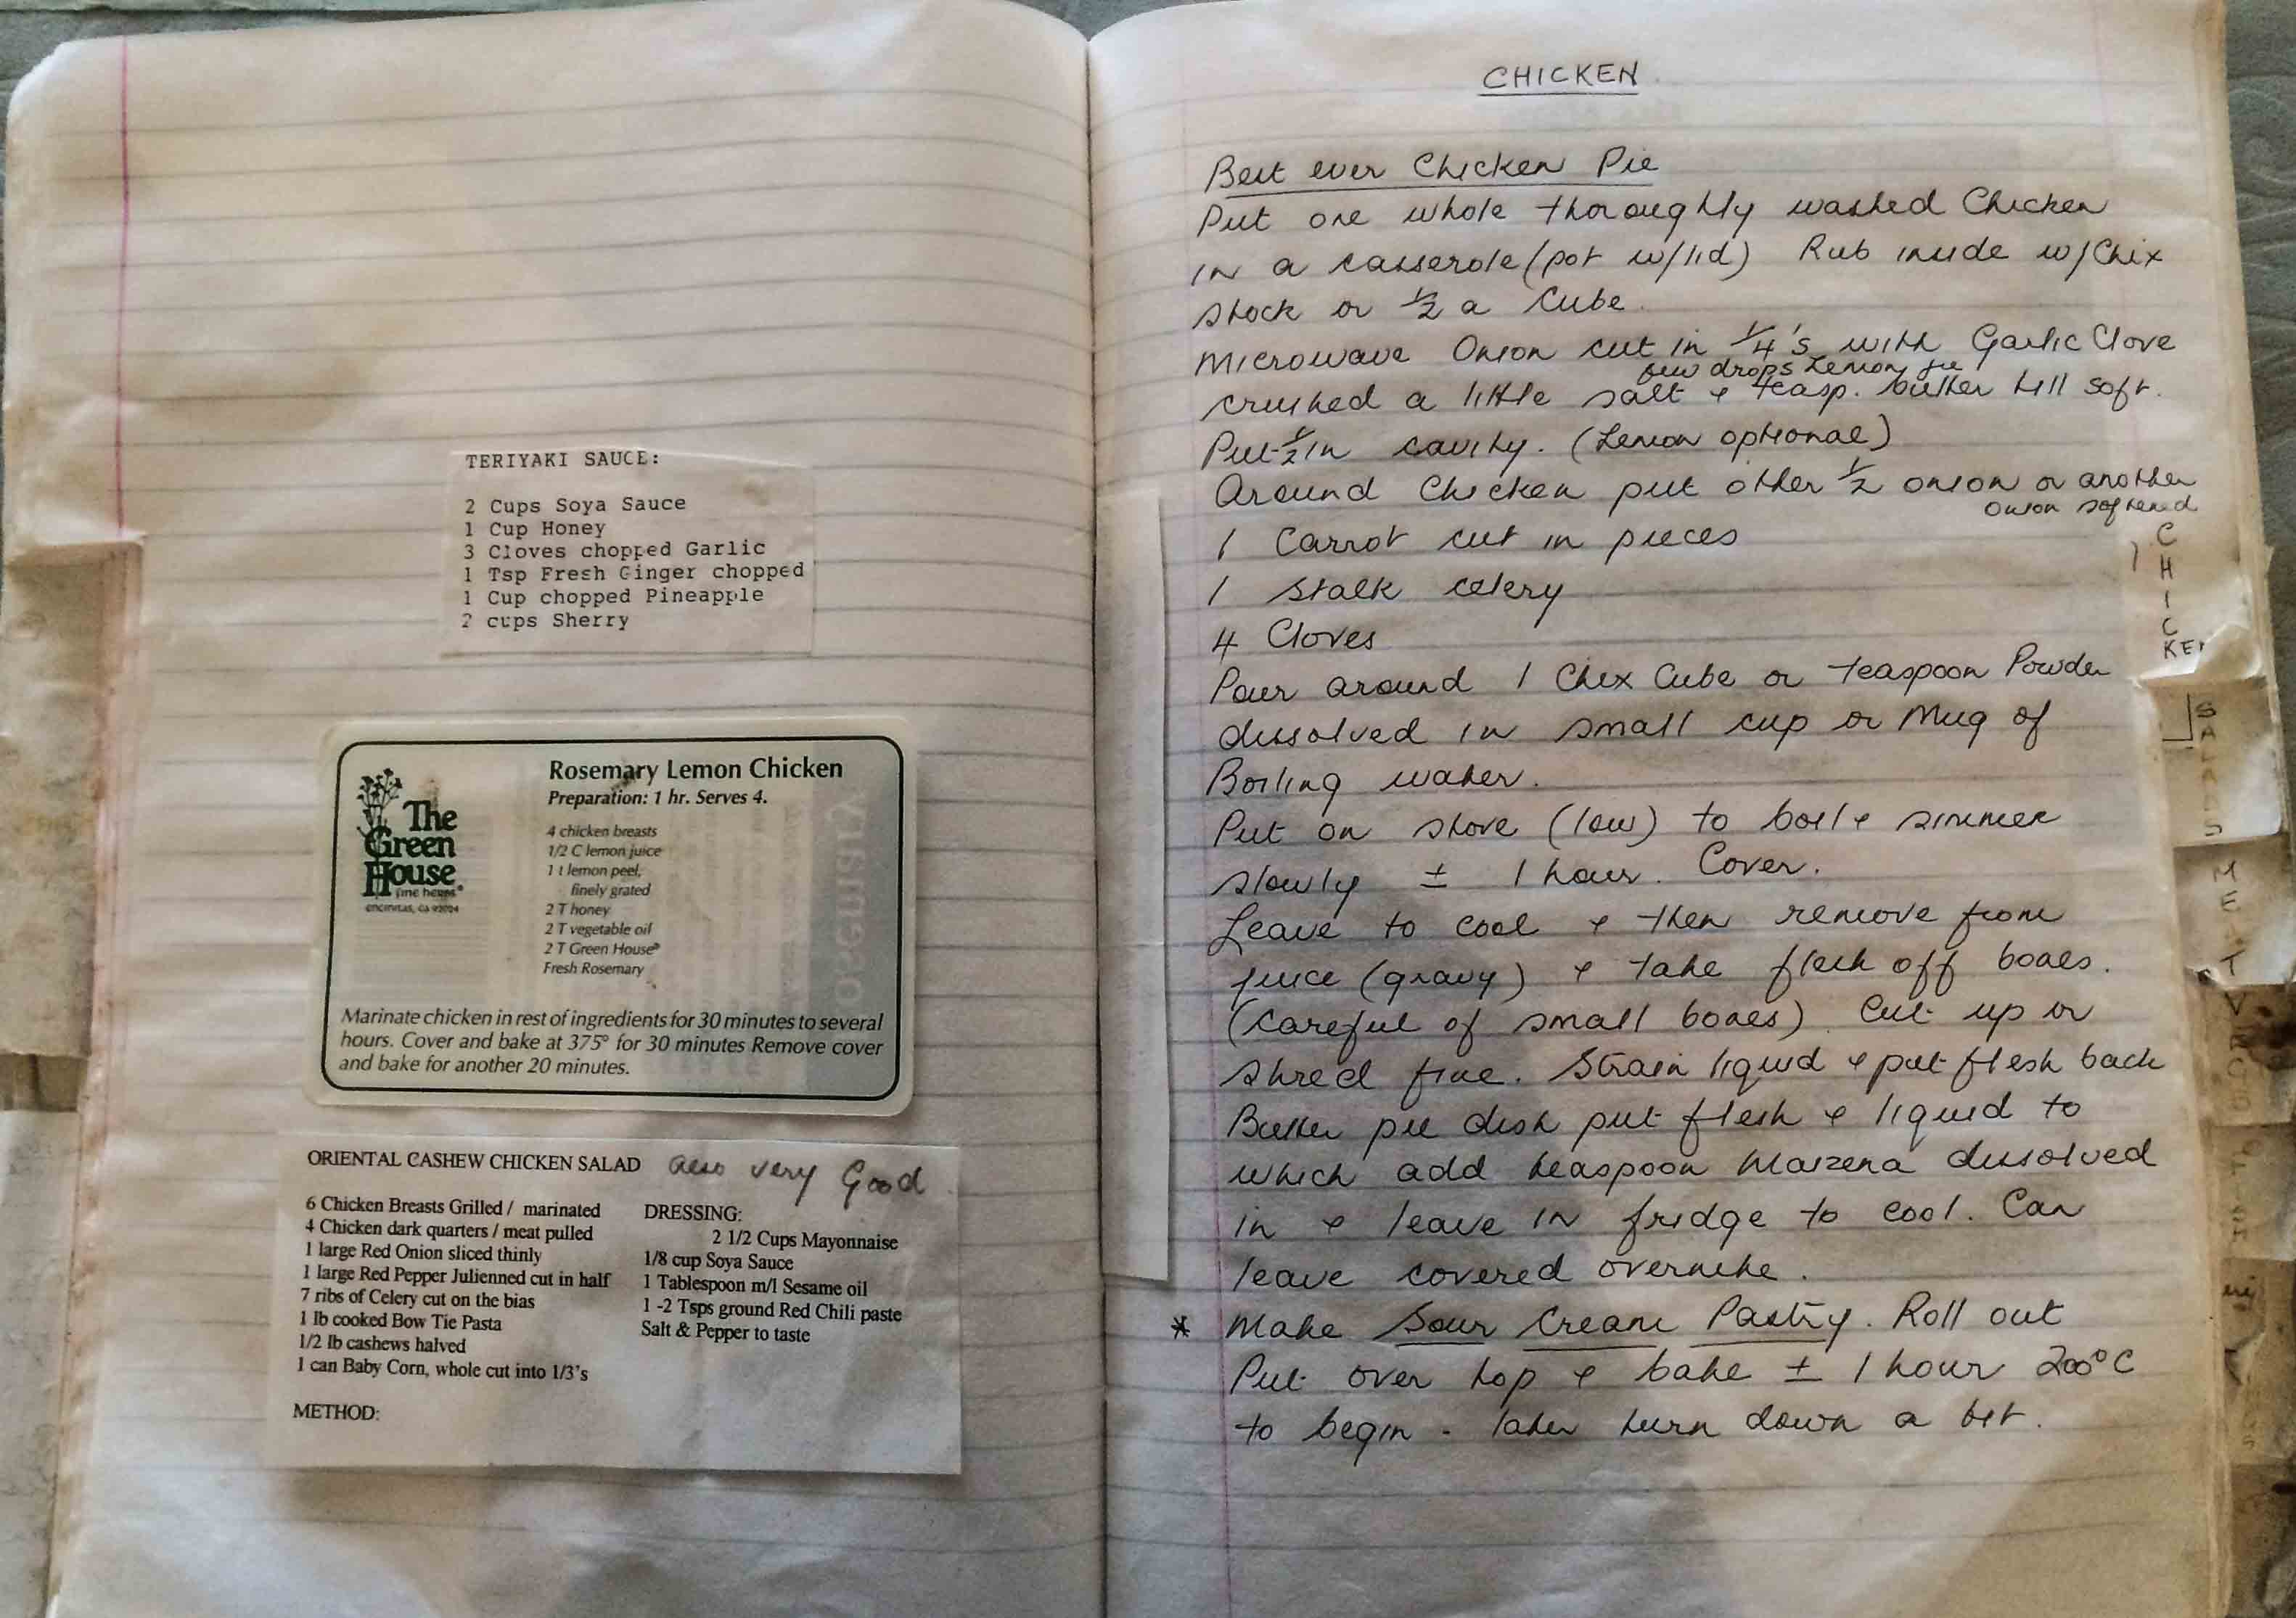 TERIYAKI SAUCE:
2 Cups Soya Sauce
1 Cup Honey
3 Cloves chopped Garlic
1 Tsp Fresh Ginger chopped
1 Cup chopped Pineapple
2 cups Sherry
The
Green
House
fine herbs®
encinitas, CA 92024
Rosemary Lemon Chicken
Preparation: 1 hr. Serves 4.
4 chicken breasts
1/2 C lemon juice
1 t lemon peel,
finely grated
2 T honey
2 T vegetable oil
2 T Green House®
Fresh Rosemary
Marinate chicken in rest of ingredients for 30 minutes to several
hours. Cover and bake at 375° for 30 minutes Remove cover
and bake for another 20 minutes.
ORIENTAL CASHEW CHICKEN SALAD also very Good
6 Chicken Breasts Grilled / marinated
4 Chicken dark quarters / meat pulled
1 large Red Onion sliced thinly
1 large Red Pepper Julienned cut in half
7 ribs of Celery cut on the bias
1 lb cooked Bow Tie Pasta
1/2 lb cashews halved
1 can Baby Corn, whole cut into 1/3's
DRESSING:
2 1/2 Cups Mayonnaise
1/8 cup Soya Sauce
1 Tablespoon m/l Sesame oil
1 -2 Tsps ground Red Chili paste
Salt & Pepper to taste
METHOD:
CHICKEN
Best ever Chicken Pie
Put one whole thoroughly washed Chicken
in a casserole (pot w/lid) Rub inside w/Chix
stock or ½ a Cube.
Microwave Onion cut in ¼'s with Garlic Clove
few drops Lemon jce
crushed a little salt & teasp. butter till soft.
Put ½ in cavity. (Lemon optional)
Around Chicken put other ½ onion or another
onion softened
1 Carrot cut in pieces
1 stalk celery
4 Cloves
Pour around 1 Chix Cube or teaspoon Powder
dissolved in small cup or Mug of
Boiling water.
Put on stove (low) to boil & simmer
slowly ± 1 hour. Cover.
Leave to cool & then remove from
juice (gravy) & take flesh off bones.
(careful of small bones). Cut up or
shred fine. Strain liquid & put flesh back
Butter pie dish put flesh & liquid to
which add teaspoon Maizena dissolved
in & leave in fridge to cool. Can
leave covered overnite.
* Make Sour Cream Pastry. Roll out
Put over top & bake ± 1 hour 200°C
to begin - later turn down a bit.
CHICKEN
SALADS
MEAT